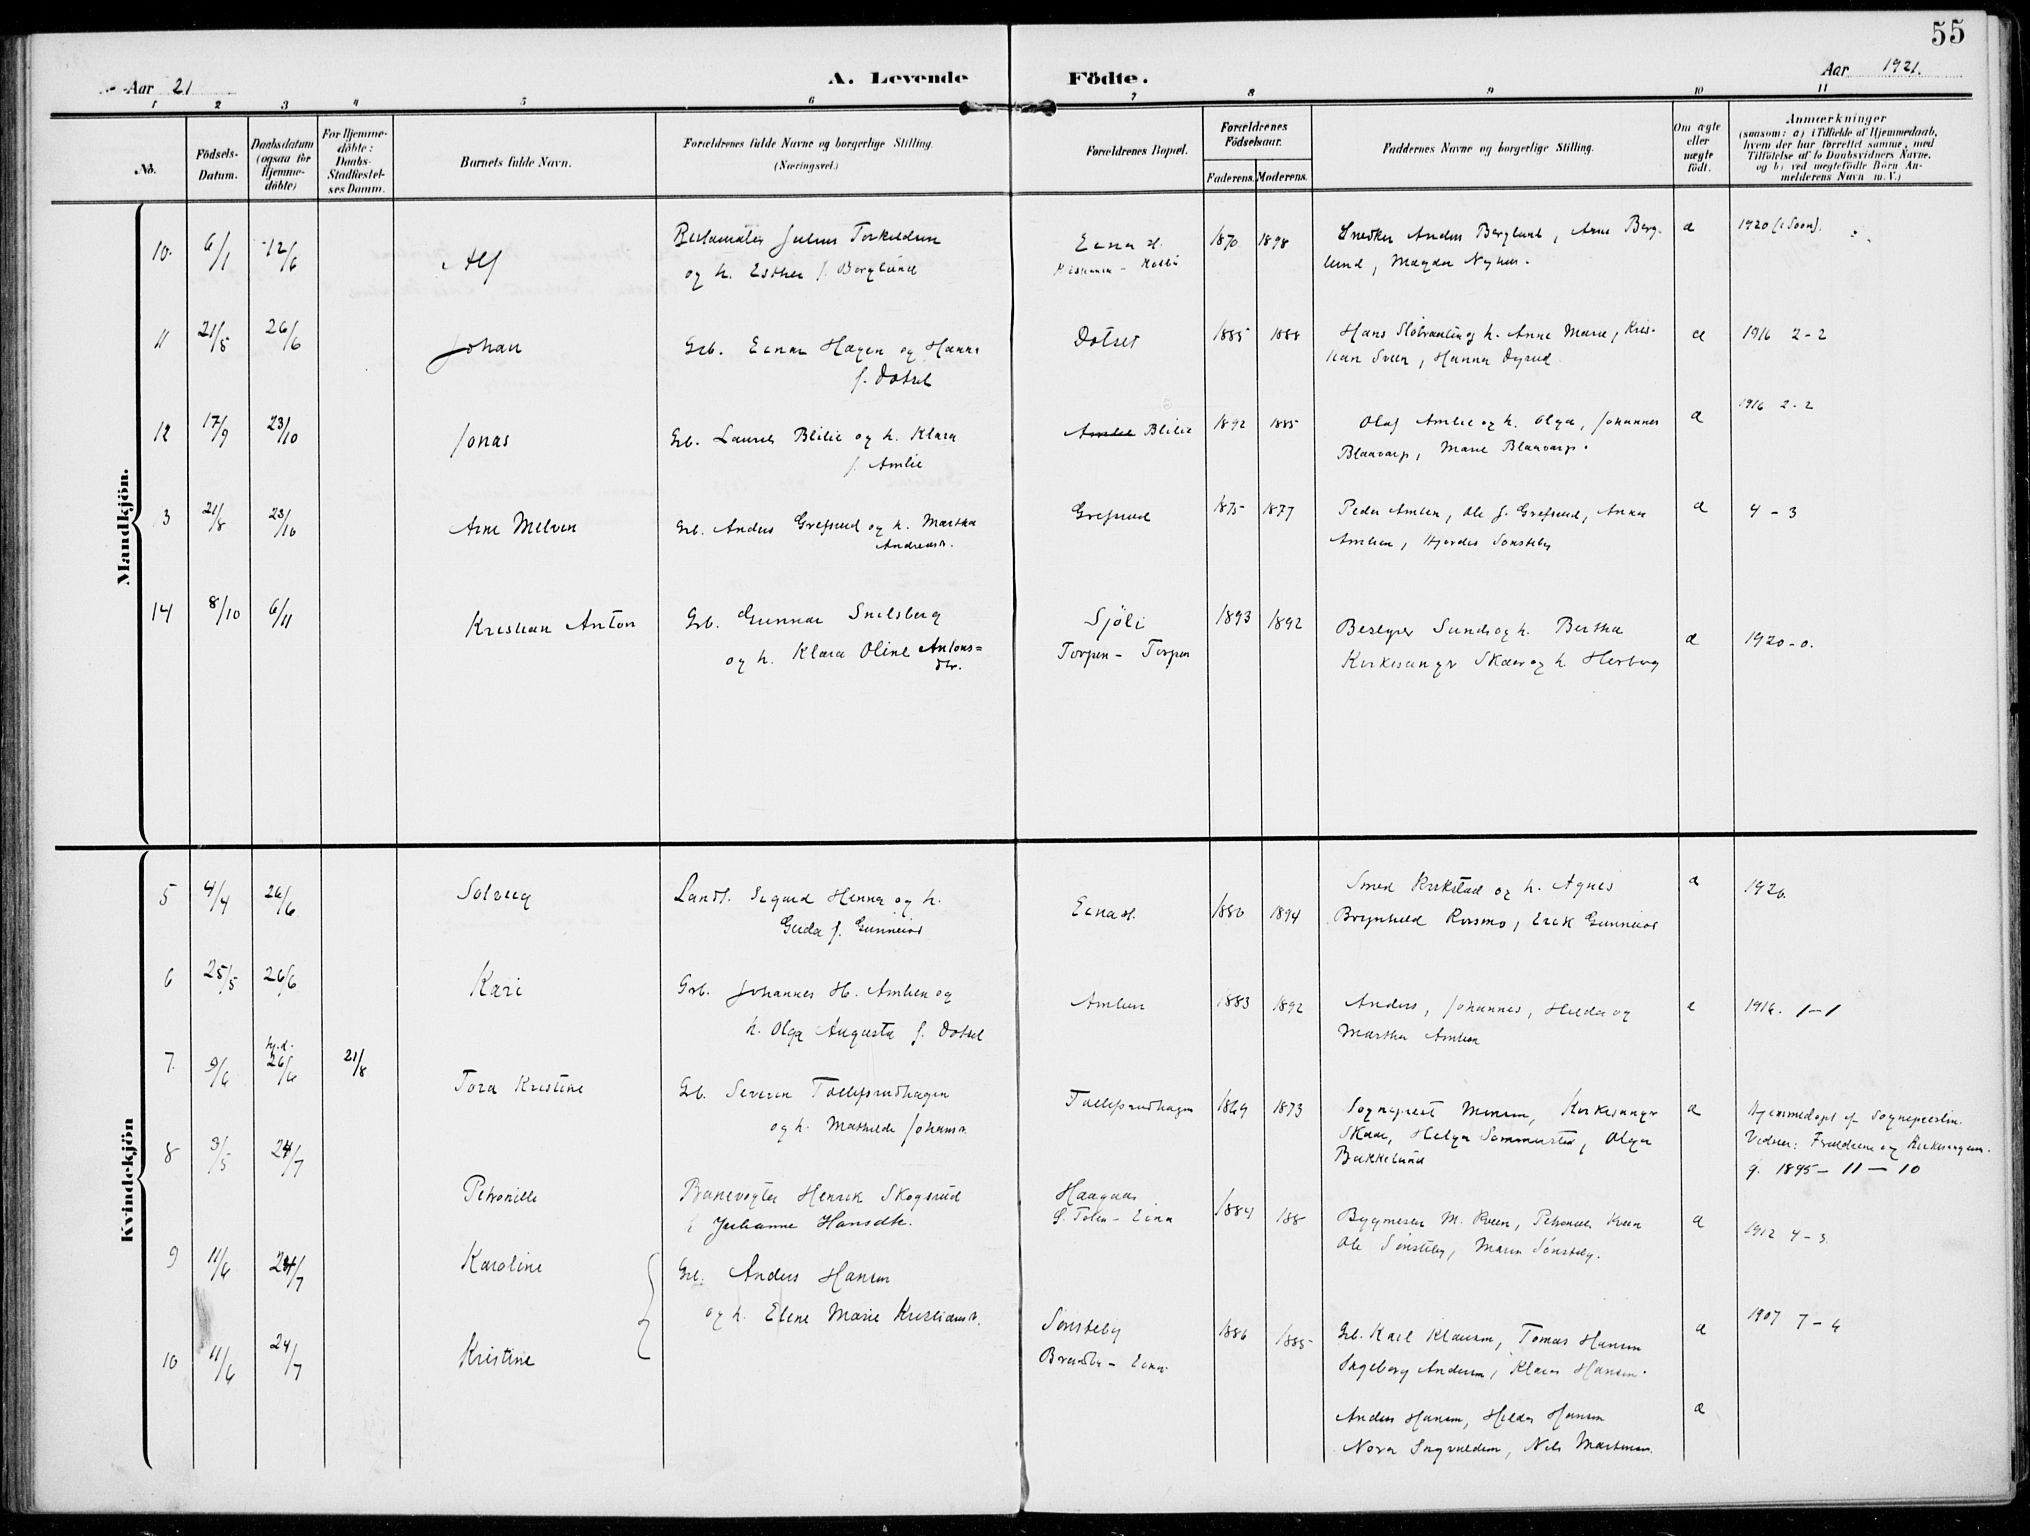 55
Aar 21
A. Levende
Födte.
Aar 1921.
1 2 3 4 5 6 7 8 9 10 11
No.
Födsels-
Datum.
Daabsdatum
(ogsaa for
Hjemme-
döbte)
For Hjemme-
döbte:
Daabs-
Stadfæstel-
ses Datum.
Barnets fulde Navn.
Forældrenes fulde Navne og borgerlige Stilling.
(Næringsvei.)
Forældrenes Bopæl.
Forældrenes
Födselsaar.
Faderens. Moderens.
Faddernes Navne og borgerlige Stilling.
Om ægte
eller
uægte
födt.
Anmærkninger
(saasom: a) i Tilfælde af Hjemmedaab,
hvem der har forrettet samme, med
Tilföielse af to Daabsvidners Navne,
og b) ved uægtefödte Börn An-
melderens Navn m. V.)
Mandkjön.
10. 6/1 12/6 Alf
Julius Torkildsen
og h. Esther f. Berglund
Eina st.
1870 1898
Snedker Anders Berglund, Arne Berg-
lund, Magda Nyhus.
a
1920
11 21/5 26/6 Johan
Grb. Einar Hagen og Hanna
f. Dotset
Dotset
1885 1888
Hans og h. Anne Marie, Kris-
tian Sveen, Hanna Dyrud
a
1916 2-2
12 17/9 23/10 Jonas
Grb. Laurits Blilie og h. Klara
f. Amlie
Amlie Blilie
1892 1885
Olaf Amlie og h. Olga, Johannes
Blaavarp, Marie Blaavarp.
a
1916 2-2
3 21/8 23/10 Arne Melvin
Grb. Anders Grefsrud og h. Martha
Andreasd.
Grefsrud
1875 1877
Peder Amlien, Ole J. Grefsrud, Anna
Amlien, Hjördis Sönsteby
a
4 - 3
14 8/10 6/11 Kristian Anton
Grb. Gunnar Snilsberg
og h. Klara Oline Antons=
dtr.
Sjöli
Torpen - Torpen
1893 1892
Bestyrer Sund og h. Bertha
Kirkesanger Skaar og h. Herborg
a
1920 - 0.
Kvindekjön
5 4/4 26/6 Solveig
Landh. Sigurd Henna og h.
Guda f. Gunneiod
Eina st.
1880 1894
Smed Kirkstad og h. Agnes
Brynhild Rosmo, Erik Gunneiod
a
1920.
6 25/5 26/6 Kari
Grb. Johannes H. Amlien og
h. Olga Augusta f. Dotset
Amlien
1883 1892
Anders, Johannes, Hilda og
Martha Amlien
1916. 1-1
7. 9/6 hj.d. 26/6 21/8 Tora Kristine
Grb. Severin Tollefsrudhagen
og h. Mathilde Johansd.
Tollefsrudhagen
1869 1873
Sogneprest Kirkesanger
Skaar, Helga Sommerstad, Olga
Bakkelund
a
Hjemmedöpt af Sogneprestin.
Vidner: Forældrene og Kirkesangeren.
g. 1895 - 11 - 10
8 3/5 24/7 Petronille
Banevogter Henrik Skogsrud
Julianne Hansdtr.
Haagaar
S. Toten - Eina
1884 188
Bygmester M. Kveen, Petronille Kveen
Ole Sönsteby, Maren Sönsteby.
a
1912 4-3
9 11/6 24/7 Karoline
Grb. Anders Hansen
og h. Elene Marie Kristiansd.
Sönsteby
1886 1885
Grb. Karl Klausen, Tomas Hansen
Ingeborg Andersen, Klara Hansen.
a
1907 7-6
10 11/6 24/7 Kristine
Anders Hansen, Hilda Hansen
Nora Ingvaldsen, Nils Martinsen.
a